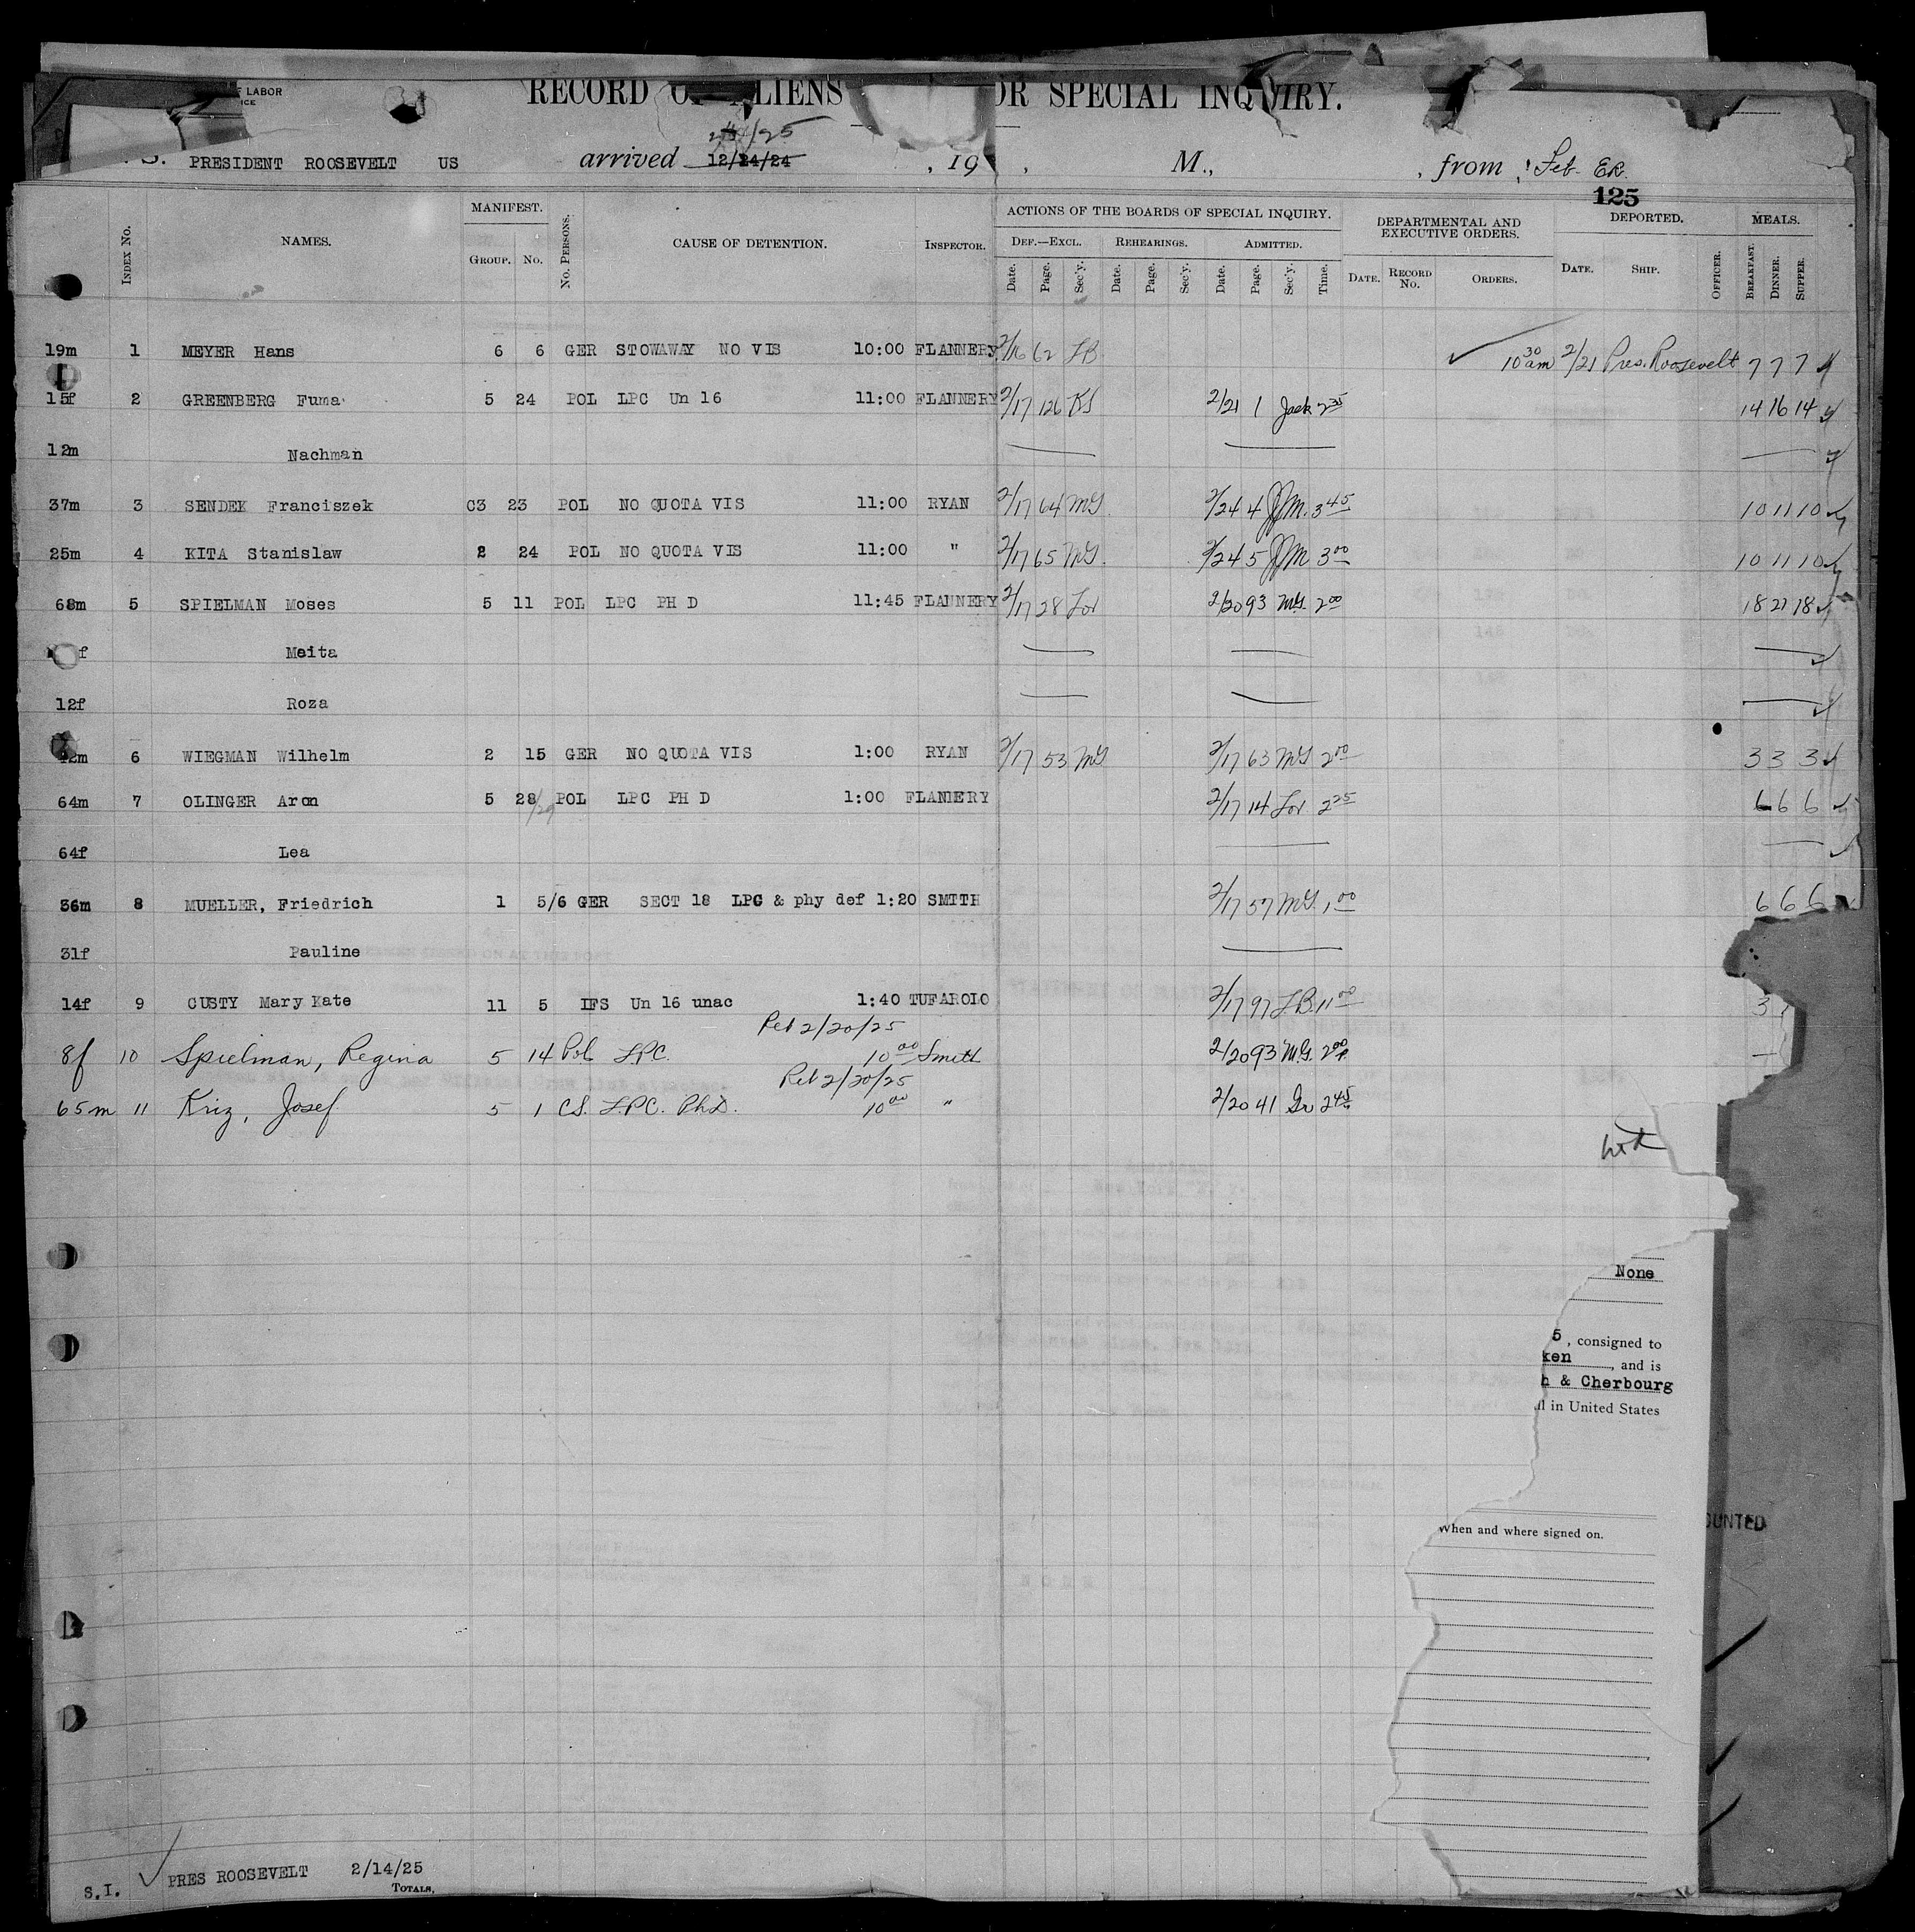 F LABOR
ICE
RECORD OF ALIENS OR SPECIAL INQUIRY.
2/14/25
S. PRESIDENT ROOSEVELT US arrived 12/24/24 , 19 , M., , from
125
INDEX No. NAMES. MANIFEST. GROUP. No. No. PERSONS. CAUSE OF DETENTION. INSPECTOR. ACTIONS OF THE BOARDS OF SPECIAL INQUIRY. DEF.—EXCL. Date. Page. Sec'y. REHEARINGS. Date. Page. Sec'y. ADMITTED. Date. Page. Sec'y. Time. DEPARTMENTAL AND EXECUTIVE ORDERS. DATE. RECORD No. ORDERS. DEPORTED. DATE. SHIP. OFFICER. MEALS. BREAKFAST. DINNER. SUPPER.
19m 1 MEYER Hans 6 6 GER STOWAWAY NO VIS 10:00 FLANNERY 2/16 62 LB 10 30 am 2/21 Pres. Roosevelt 7 7 7
15f 2 GREENBERG Fuma 5 24 POL LPC Un 16 11:00 FLANNERY 2/17 126 KS 2/21 1 Jack 2 35 14 16 14
12m Nachman
37m 3 SENDEK Franciszek C3 23 POL NO QUOTA VIS 11:00 RYAN 2/17 64 MG 2/24 4 JJM. 3 45 10 11 10
25m 4 KITA Stanislaw 2 24 POL NO QUOTA VIS 11:00 " 2/17 65 MG. 2/24 5 JJM 3 00 10 11 10
68m 5 SPIELMAN Moses 5 11 POL LPC PH D 11:45 FLANNERY 2/17 28 Lor 2/20 93 MG. 2 00 18 21 18
f Meita
12f Roza
42m 6 WIEGMAN Wilhelm 2 15 GER NO QUOTA VIS 1:00 RYAN 2/17 53 MG 2/17 63 MG 2 00 3 3 3
64m 7 OLINGER Aron 5 28/29 POL LPC PH D 1:00 FLANNERY 2/17 14 Lor. 2 25 6 6 6
64f Lea
36m 8 MUELLER, Friedrich 1 5/6 GER SECT 18 LPC & phy def 1:20 SMITH 2/17 57 MG. 1 00 6 6 6
31f Pauline
14f 9 CUSTY Mary Kate 11 5 IFS Un 16 unac 1:40 TUFAROLO 2/17 97 LB. 11 00 3
Ret 2/20/25
8f 10 Spielman, Regina 5 14 Pol LPC. 10 00 Smith 2/20 93 MG. 2 00
Ret 2/20/25
65m 11 Kriz, Josef 5 1 CS. LPC. Ph.D. 10 00 " 2/20 41 Gr 2 45
None
5, consigned to
ken , and is
h & Cherbourg
ll in United States
When and where signed on.
OUNTED
S.I. PRES ROOSEVELT 2/14/25
TOTALS,